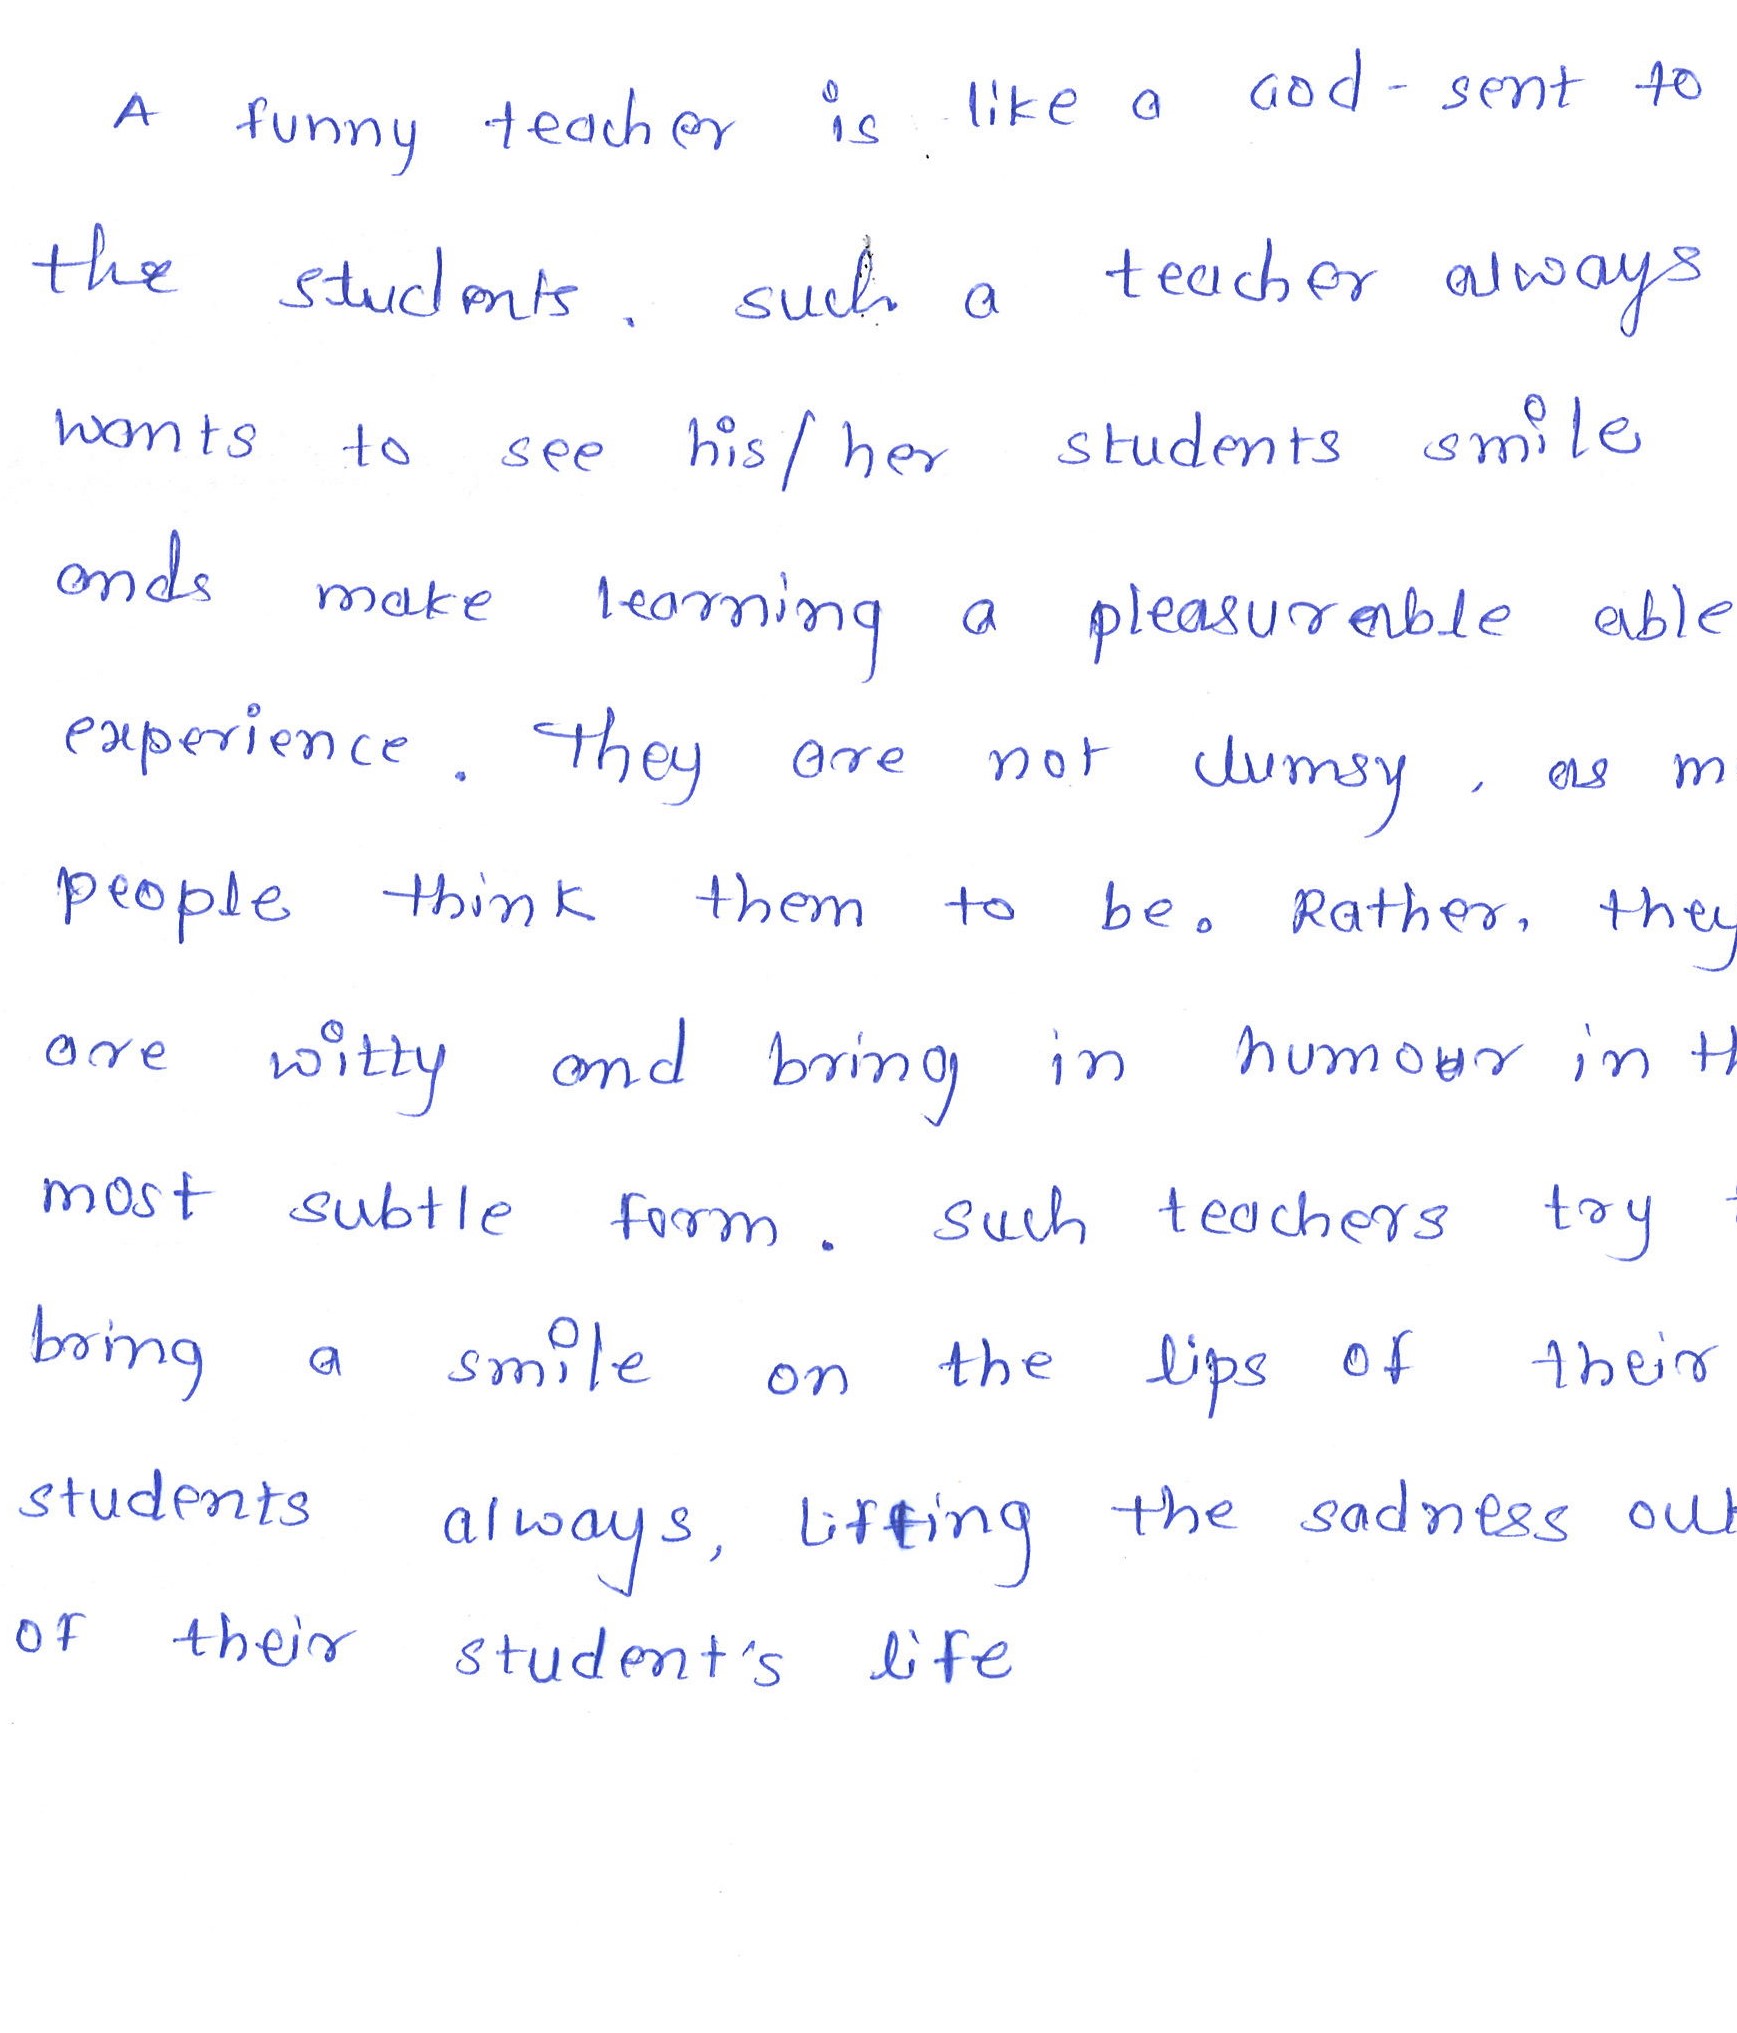 A funny teacher is like a God-sent to
the students. such a teacher always
wants to see his/her students smile
ands make learning a pleasurable able
experience. They are not clumsy, as m
people think them to be. Rather, they
are witty and bring in humour in th
most subtle form. such teachers try
bring a smile on the lips of their
students always, lifting the sadness out
of their student's life